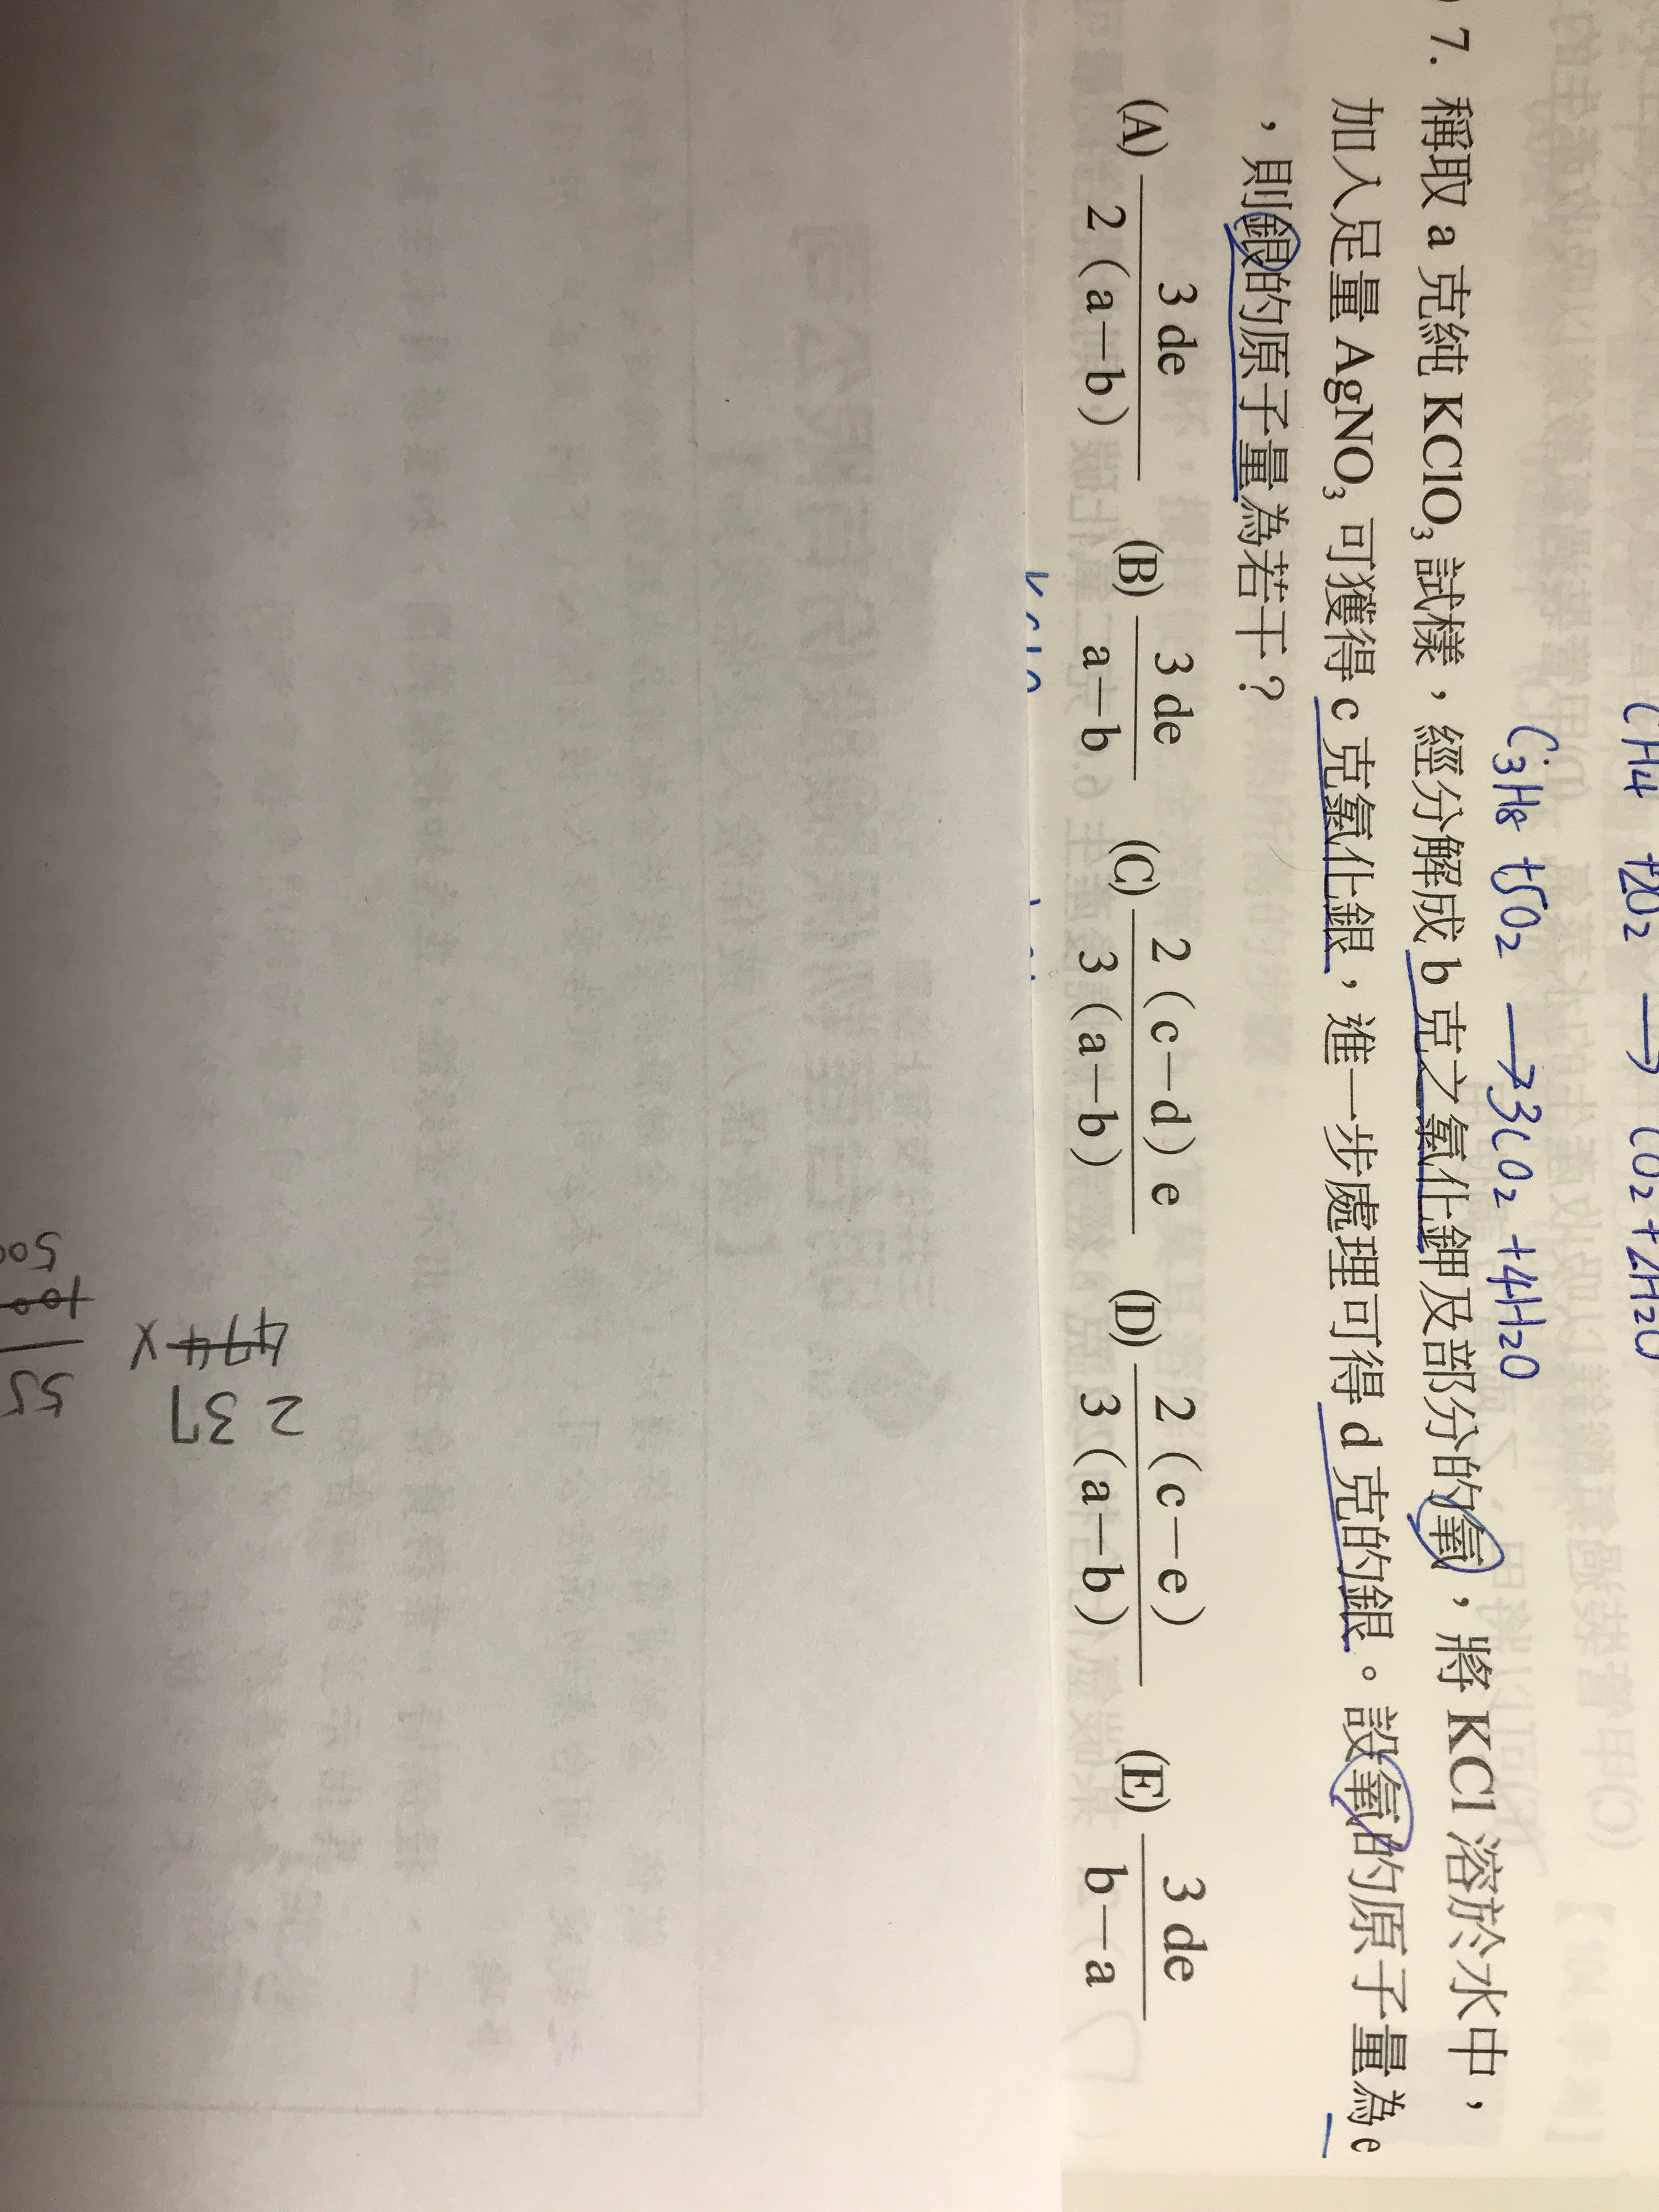 CH4 +2O2 → CO2 +2H2O
C3H8 +5O2 → 3CO2 +4H2O
7. 稱取 a 克純 KClO₃ 試樣，經分解成 b 克之氯化鉀及部分的氧，將 KCl 溶於水中，
加入足量 AgNO₃ 可獲得 c 克氯化銀，進一步處理可得 d 克的銀。設氧的原子量為 e
，則銀的原子量為若干？
(A) 3 de / 2（a－b） (B) 3 de / a－b (C) 2（c－d）e / 3（a－b） (D) 2（c－e） / 3（a－b） (E) 3 de / b－a
237
474 x
55
100